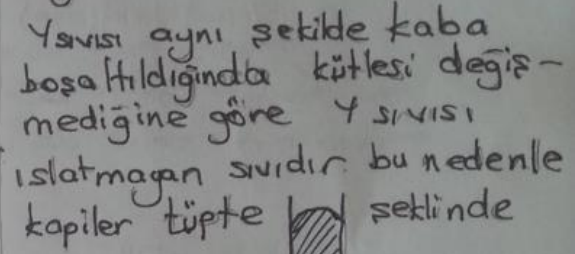 Y sıvısı aynı şekilde kaba
boşaltıldığında kütlesi değiş-
mediğine göre Y sıvısı
ıslatmayan sıvıdır bu nedenle
kapiler tüpte şeklinde